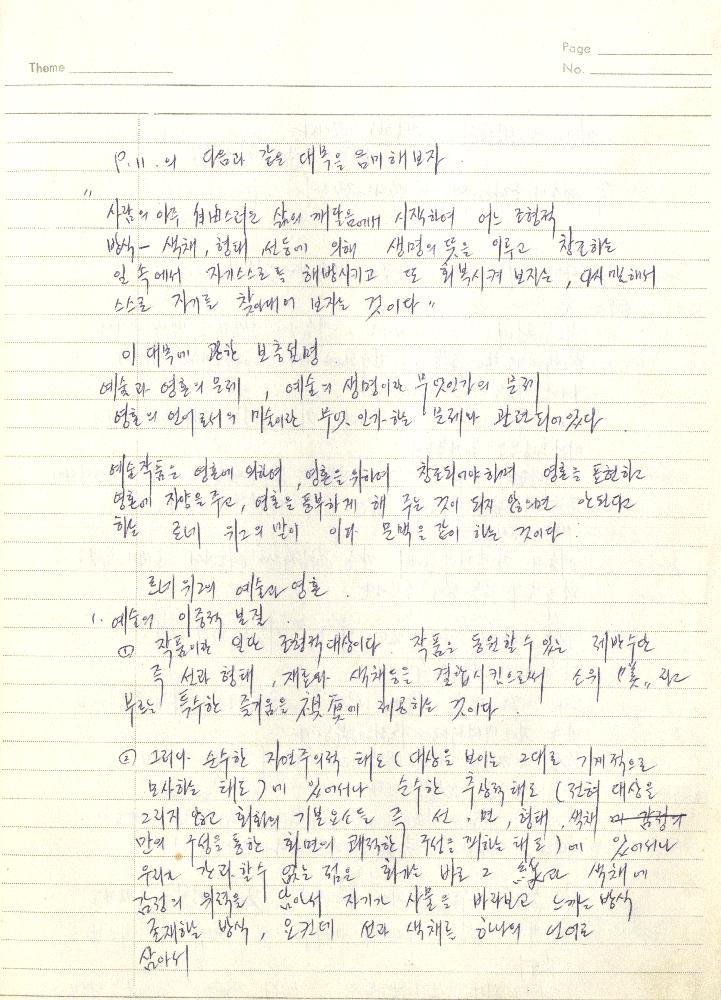 Page
Theme
No.
P.11.의 다음과 같은 대목을 음미해보자.
"
사람의 아주 自由스러운 삶의 깨달음에서 시작하여 어느 조형적
방식- 색채, 형태, 선등에 의해 생명의 뜻을 이루고 창조하는
일 속에서 자기스스로를 해방시키고 또 회복시켜 보자는, 다시말해서
스스로 자기를 찾아내어 보자는 것이다"
이 대목에 관한 보충설명.
예술과 영혼의 문제, 예술의 생명이란 무엇인가의 문제
영혼의 언어로서의 미술이란 무엇인가 하는 문제와 관련되어있다.
예술작품은 영혼에 의하여, 영혼을 위하여 창조되어야하며 영혼을 표현하고
영혼에 자양을 주고, 영혼을 풍부하게 해 주는 것이 되지 않으면 안된다고
하는 르네 위그의 말이 이와 문맥을 같이 하는 것이다.
르네 위그의 예술과 영혼.
1. 예술의 이중적 본질.
① 작품이란 일단 조형적대상이다. 작품을 동원할 수 있는 제반수단
즉 선과 형태, 재료와 색채등을 결합시킴으로써 소위 "美"라고
부르는 특수한 즐거움을 視覺에 제공하는 것이다.
② 그러나 순수한 자연주의적 태도(대상을 보이는 그대로 기계적으로
모사하는 태도)에 있어서나 순수한 추상적태도(전혀 대상을
그리지 않고 회화의 기본요소들 즉 선·면, 형태, 색채
만의 구성을 통한 화면의 쾌적한 구성을 꾀하는 태도)에 있어서나
우리가 간과할수 없는 점은 화가는 바로 그 線과 색채에
감정의 위력을 담아서 자기가 사물을 바라보고 느끼는 방식
존재하는 방식, 요컨데 선과 색채를 하나의 언어로
삼아서